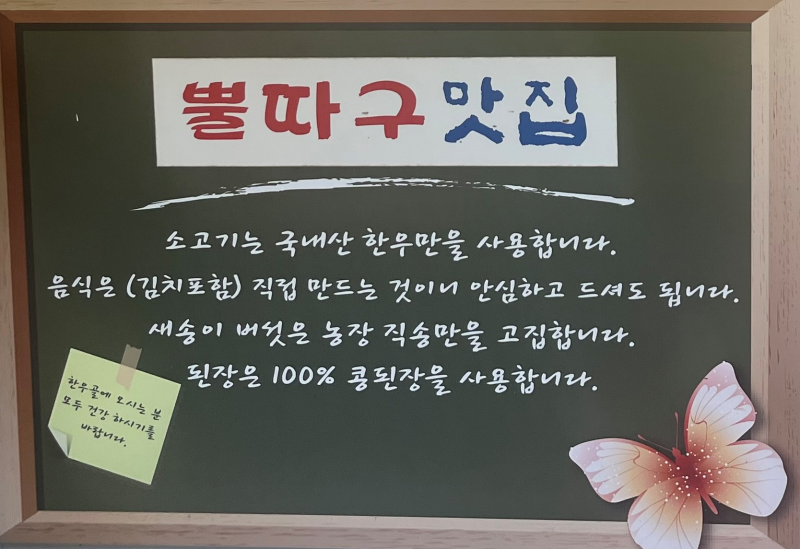 뿔따구 맛집
소고기는 국내산 한우만을 사용합니다.
음식은 (김치포함) 직접 만드는 것이니 안심하고 드셔도 됩니다.
새송이 버섯은 농장 직송만을 고집합니다.
된장은 100% 콩된장을 사용합니다.
한우골에 오시는 분
모두 건강 하시기를
바랍니다.